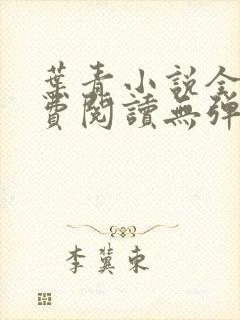 葉青小說全
費閱讀無彈
李冀東